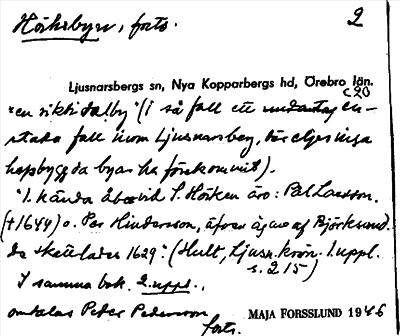 Hörksbyn, forts. 2
Ljusnarsbergs sn, Nya Kopparbergs hd, Örebro län.
C 20
"en riktig dalby" (i så fall ett undantag en-
staka fall inom Ljusnarsberg, där eljes inga
hopbyggda byar ha förekommit).
"1. kända åboar vid S. Hörken äro: Pål Larsson
(†1644) o. Per Hindersson, äfven ägare af Björksund.
De skattlades 1629." (Hult, Ljusn. krön. 1. uppl.
s. 215)
I samma bok. 2. uppl.,
omtalas Peter Pedersson
forts.
MAJA FORSSLUND 1946